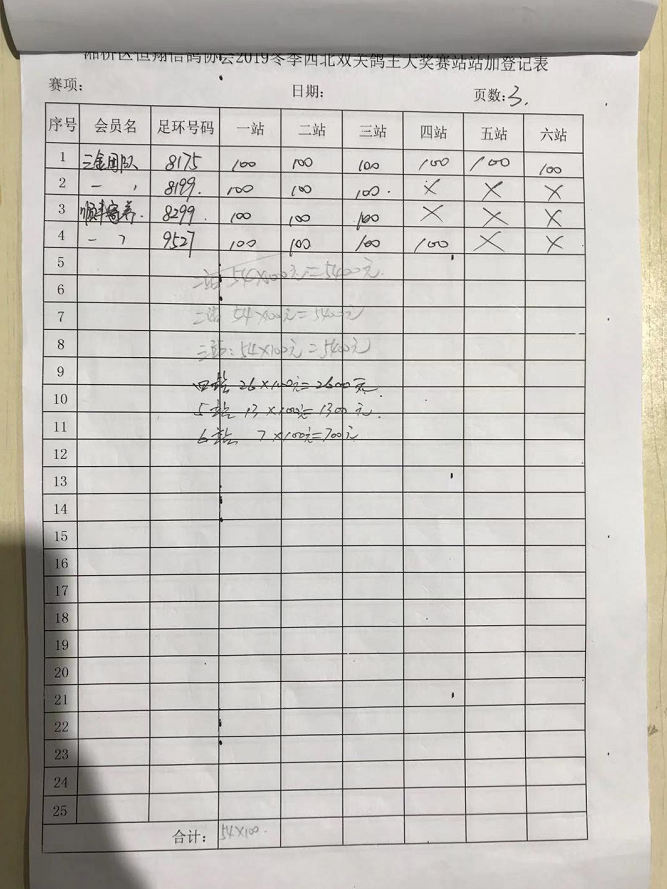 湘桥区恒翔信鸽协会2019冬季西北双关鸽王大奖赛站站加登记表
赛项: 日期: 页数:3.
序号 会员名 足环号码 一站 二站 三站 四站 五站 六站
1 三金团队 8175 100 100 100 100 100 100
2 一 , 8199. 100 100 100. × × ×
3 顺丰寄养. 8299. 100 100 100 × × ×
4 一 , 9527 100 100 100 100 × ×
5
一站 54×100元=5400元.
6
7 二站 54×100元=5400元
8 三站:54×100元=5400元
9
四站 26×100元=2600元.
10
5站 13×100元=1300元.
11
6站 7×100元=700元
12
13
14
15
16
17
18
19
20
21
22
23
24
25
合计: 54×100.